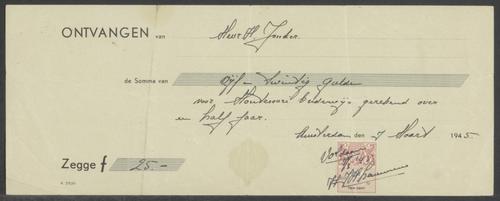 ONTVANGEN van Heer H. Jonder
de Somme van Vijf en twintig gulden
voor Montessori onderwijs gerekend over
een half jaar.
Amsterdam den 7 Maart 1945
Zegge f 25.-
Voldaan